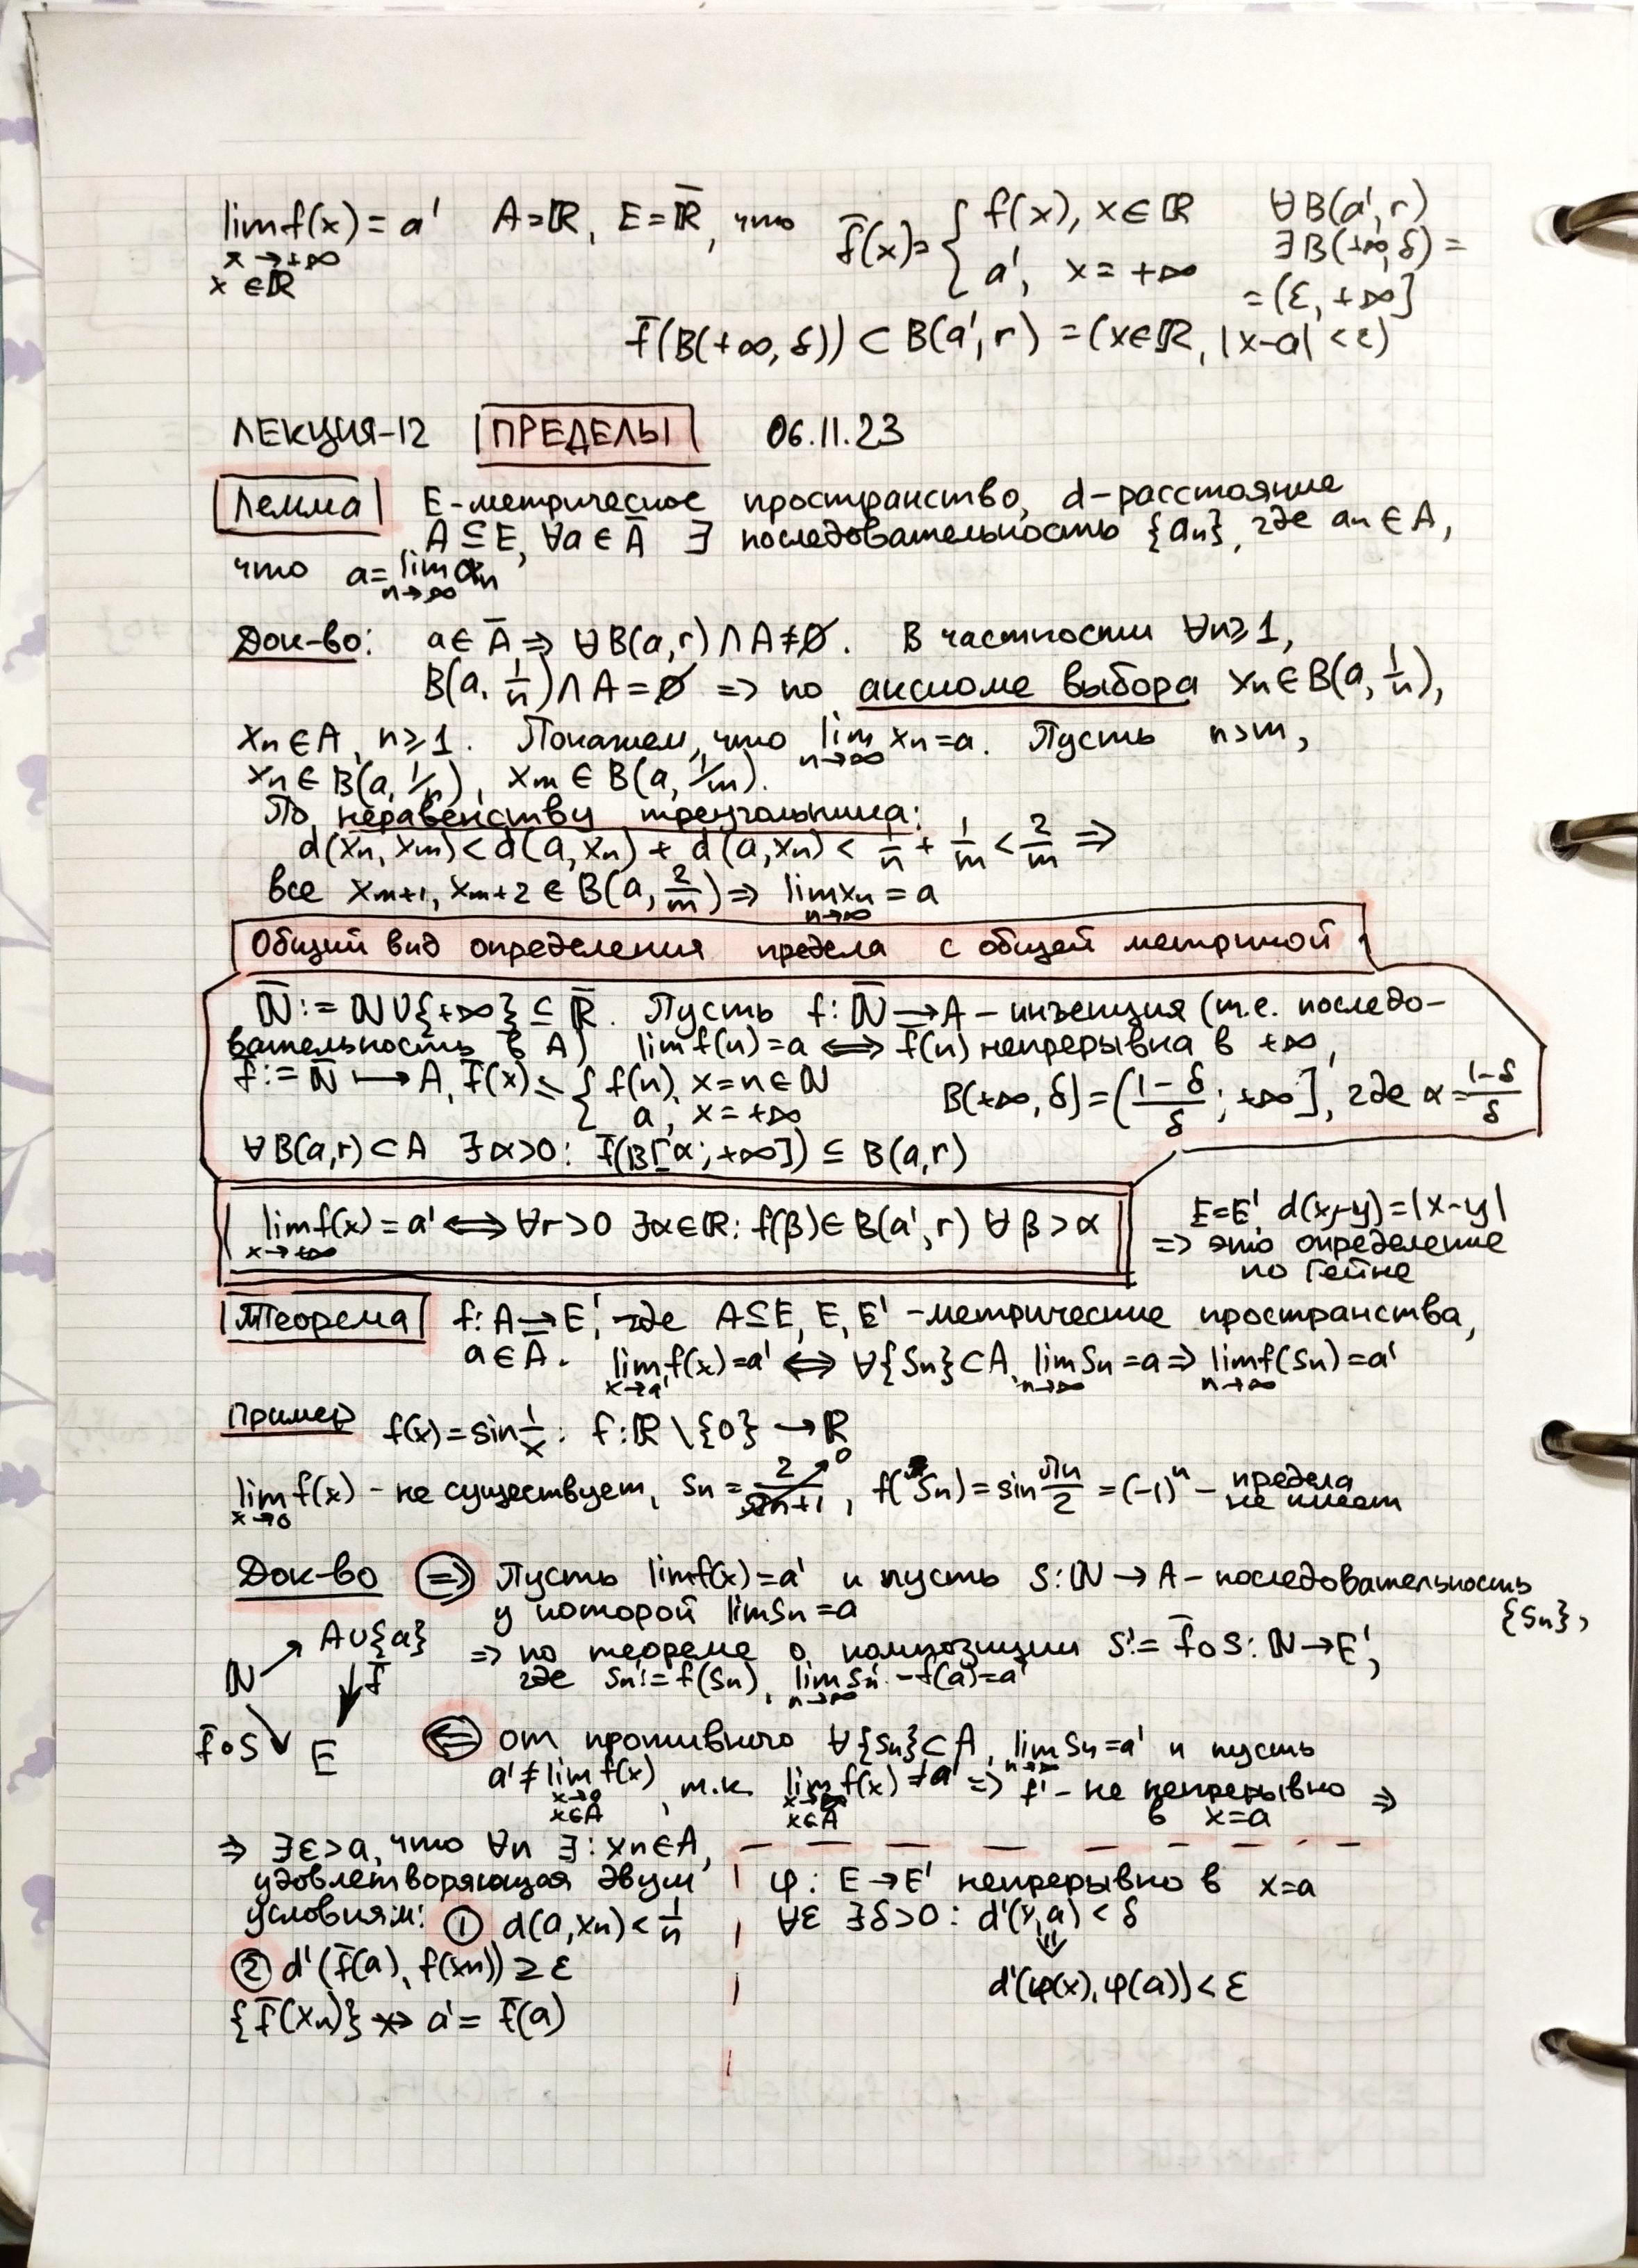 lim f(x) = a'   A=ℝ, E=ℝ̄, что   f̄(x)= { f(x), x∈ℝ   ∀B(a', r)
x→+∞   a', x=+∞   ∃B(+∞, δ) =
x∈ℝ   =(ε, +∞]
f̄(B(+∞, δ)) ⊂ B(a', r) = (x∈ℝ, |x-a| < ε)
ЛЕКЦИЯ-12 ПРЕДЕЛЫ 06.11.23
Лемма E-метрическое пространство, d-расстояние
A⊆E, ∀a∈Ā ∃ последовательность {an}, где an∈A,
что a=lim an
n→∞
Док-во: a∈Ā ⇒ ∀B(a,r)∩A≠∅. В частности ∀n≥1,
B(a, 1/n)∩A=∅ => по аксиоме выбора xn∈B(a, 1/n),
xn∈A, n≥1. Покажем, что lim xn=a. Пусть n>m,
n→∞
xn∈B(a, 1/n), xm∈B(a, 1/m).
По неравенству треугольника:
d(xn, xm)<d(a,xn) + d(a,xn) < 1/n + 1/m < 2/m ⇒
все xm+1, xm+2 ∈ B(a, 2/m) ⇒ lim xn = a
n→∞
Общий вид определения предела с общей метрикой
ℕ̄ := ℕ∪{+∞} ⊆ ℝ̄. Пусть f: ℕ̄ → A – инъекция (т.е. последо-
вательность в A) lim f(n)=a ⟺ f(n) непрерывна в +∞,
f̄:=ℕ̄ ↦ A, f̄(x) = { f(n), x=n∈ℕ   B(+∞, δ)=((1-δ)/δ ; +∞], где α=(1-δ)/δ
a, x=+∞
∀B(a,r)⊂A ∃α>0: f̄(B[α;+∞]) ⊆ B(a,r)
lim f(x) = a' ⟺ ∀r>0 ∃α∈ℝ: f(β)∈B(a',r) ∀β>α
x→+∞
E=E', d(x,y)=|x-y|
=> это определение
по Гейне
Теорема f: A→E', где A⊆E, E, E' -метрические пространства,
a∈Ā. lim f(x)=a' ⟺ ∀{Sn}⊂A, lim Sn=a ⇒ lim f(Sn)=a'
x→a   n→∞   n→∞
Пример f(x)=sin 1/x : f:ℝ\{0}→ℝ
lim f(x) - не существует, Sn = 2/(2n+1) → 0, f(Sn)=sin πn/2 =(-1)ⁿ – предела
x→0   не имеет
Док-во (⇒) Пусть lim f(x)=a' и пусть S:ℕ→A – последовательность
у которой lim Sn=a   {Sn},
ℕ → A∪{a}   ⇒ по теореме о композиции S':= f̄∘S: ℕ→E',
↓ f̄   где Sn':=f(Sn), lim Sn' = f(a)=a'
n→∞
f̄∘S ↘ E   (⇐) от противного ∀{Sn}⊂A, lim Sn=a' и пусть
n→∞
a'≠lim f(x), т.к. lim f(x)≠a' => f' - не непрерывно ⇒
x→a   x→a   в x=a
x∈A   x∈A
⇒ ∃ε>a, что ∀n ∃: xn∈A,
удовлетворяющая двум
условиям: ① d(a,xn)<1/n
② d'(f̄(a), f(xn)) ≥ ε
{f̄(xn)} ↛ a'= f̄(a)
φ: E→E' непрерывно в x=a
∀ε ∃δ>0: d'(x,a) < δ
⇓
d'(φ(x),φ(a)) < ε